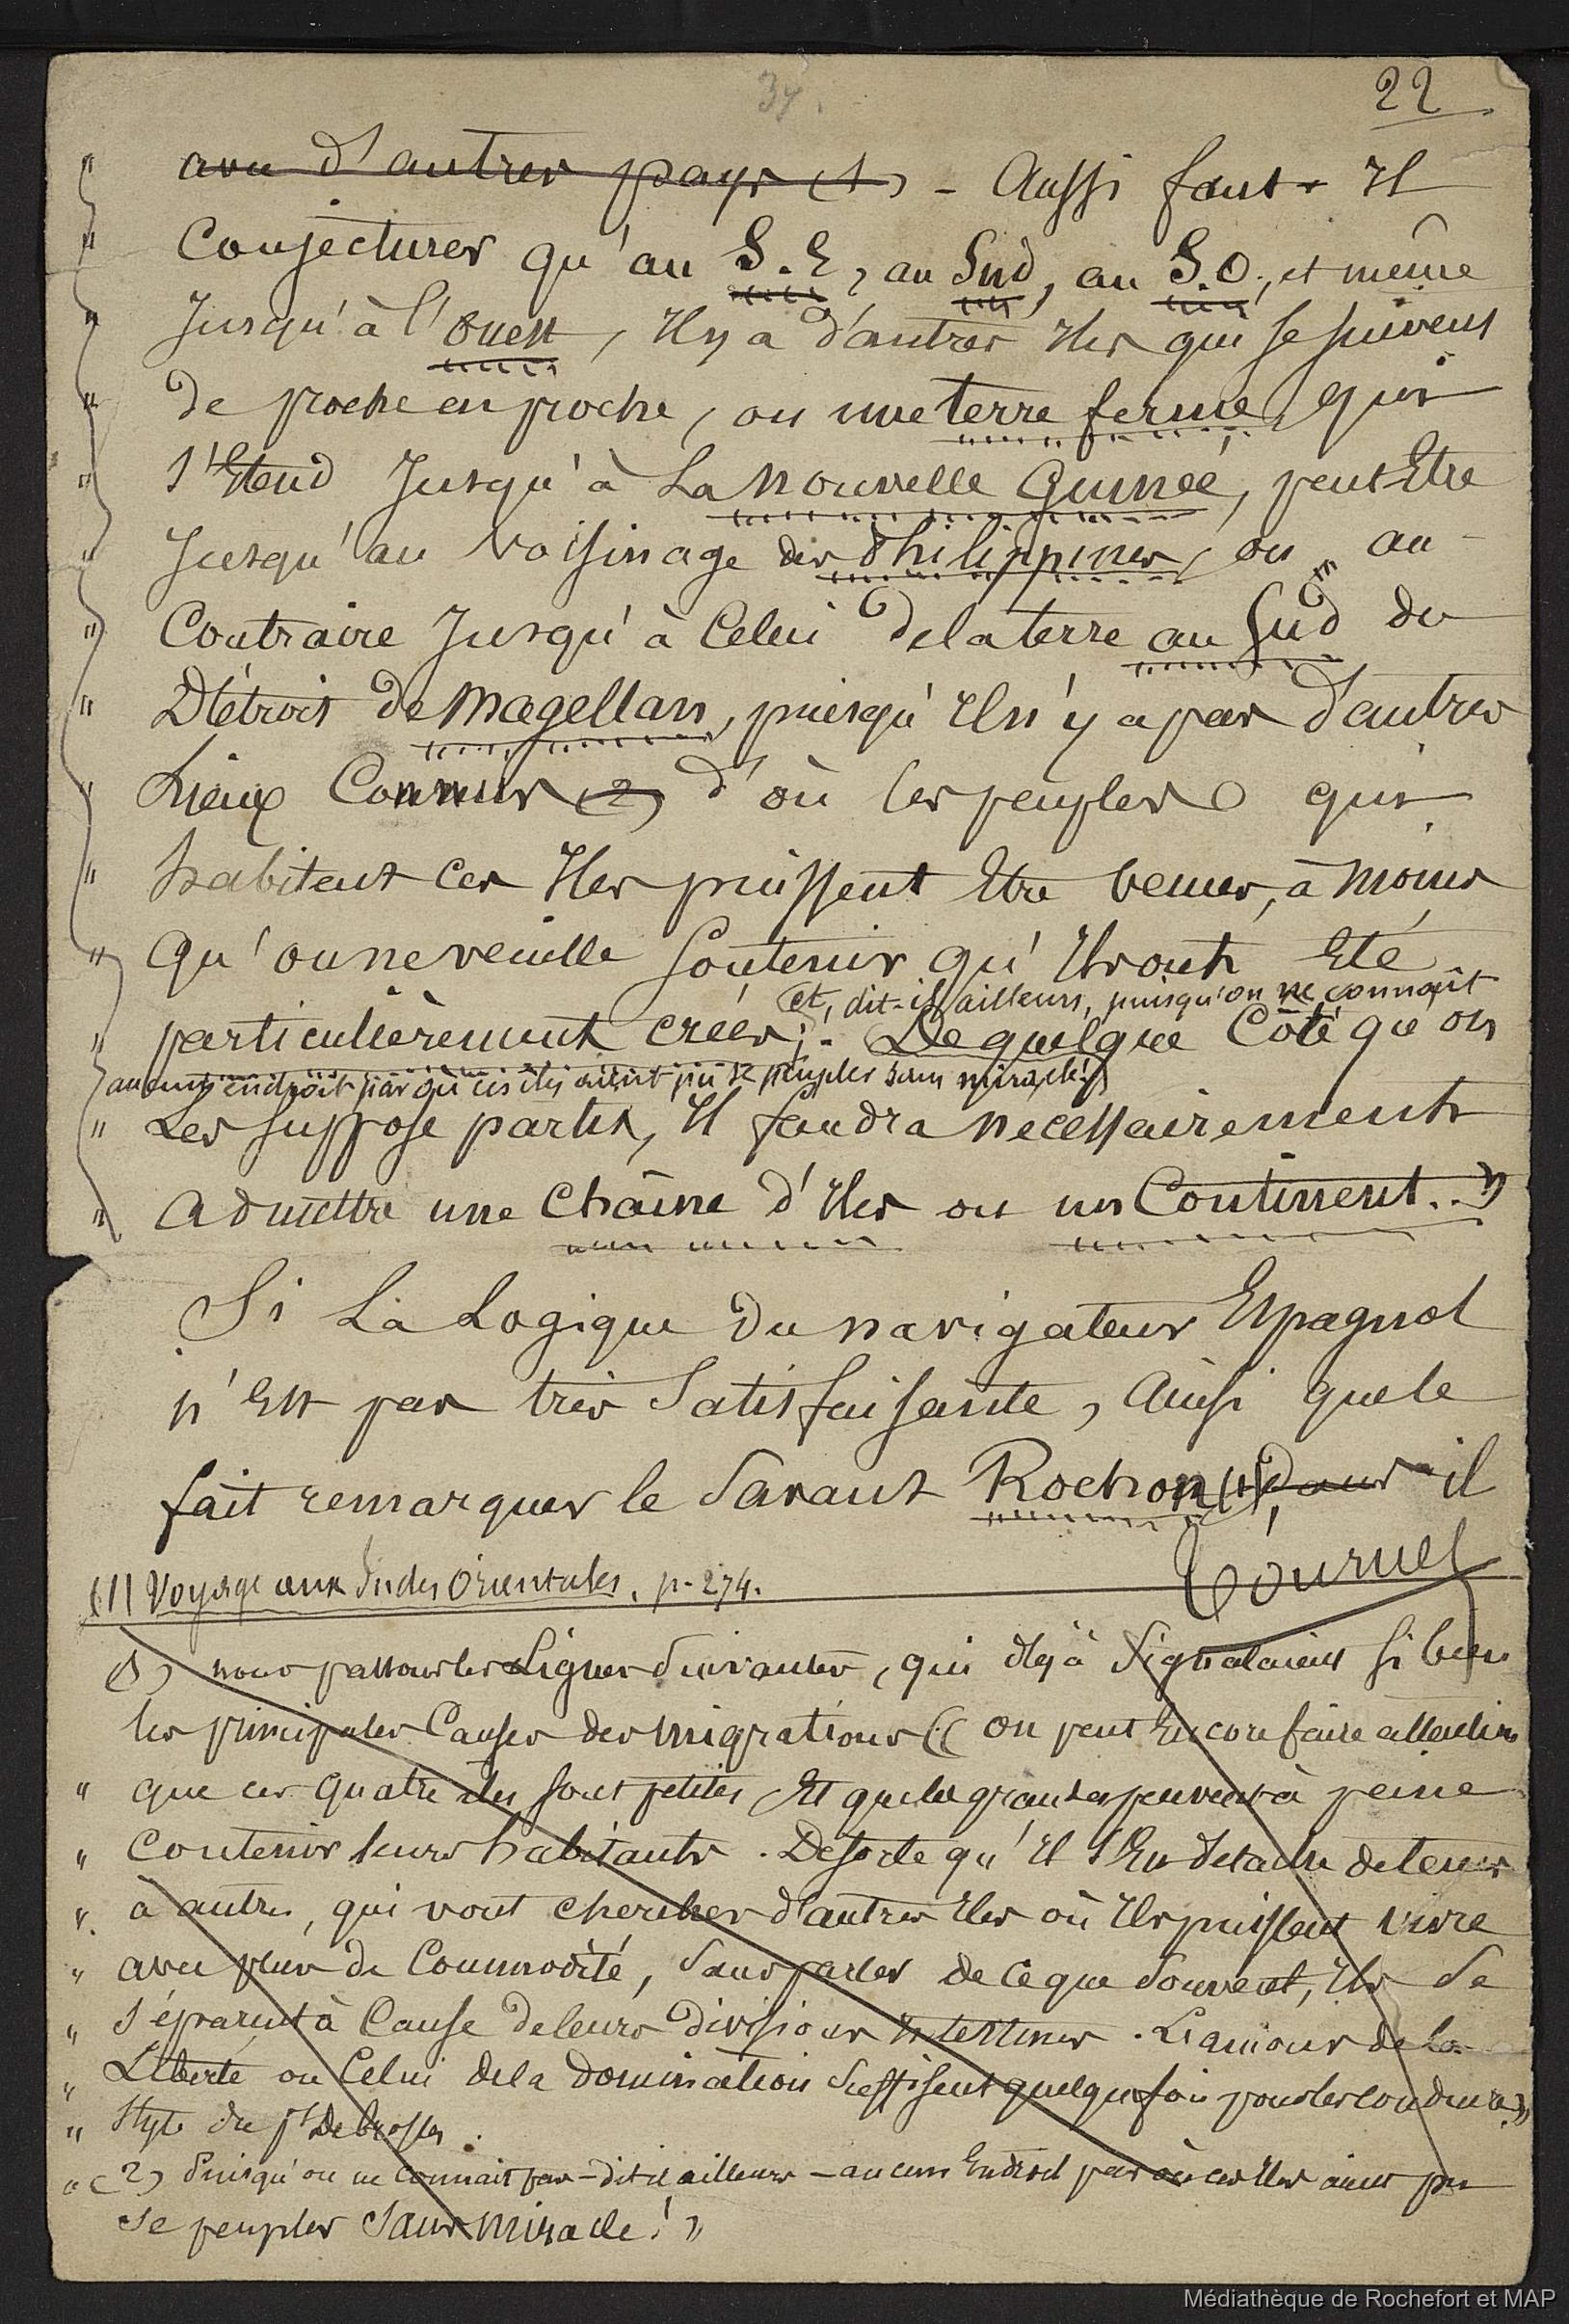 37.
22
" avec d'autres pays (1) - Aussi faut-Il
" Conjecturer qu'au S.E, au Sud, au S.O., et même
" Jusqu'à l'Ouest, Il y a d'autres Iles qui se suivent
" de proche en proche, ou une terre ferme, qui
" s'Etend Jusqu'à La Nouvelle Guinée, peut Etre
" Jusqu'au Voisinage des Philippines, ou au
" Contraire Jusqu'à Celui de la terre au Sud du
" Détroit de Magellan, puisqu'Il n'y a pas d'autres
" Lieux Connus (2) d'où les peuples qui
" habitent ces Iles puissent Etre Venus, à moins
" Qu'on ne veuille Soutenir qu'Ils ont Eté
(et, dit-il ailleurs, puisqu'on ne connaît
" particulièrement créés; . De quelque Côté qu'on
aucun endroit par où ces îles aient pu se peupler sans miracle!)
" Les suppose partis, Il faudra necessairement
" admettre une Chaîne d'Iles ou un Continent.. »
Si La Logique du navigateur Espagnol
n'Est pas très Satisfaisante, Ainsi que le
fait remarquer le Savant Rochon (1), dans il
Tournel
(1) Voyage aux Indes Orientales. p. 274.
(1) nous passons les Lignes Suivantes, qui déjà Signalaient Si bien
les principales Causes des migrations (( on peut Encore faire attention
" que ces quatre îles sont petites, Et que les grandes peuvent à peine
" Contenir leurs habitants. De sorte qu'Il S'En détache de tems
" à autre, qui vont chercher d'autres Iles où Ils puissent vivre
" avec plus de Commodité, Sans parler de ce que Souvent, Ils Se
" Séparent à Cause de leurs divisions Intestines. L'amour de la
" Liberté ou Celui de la domination Suffisent quelquefois pour les conduire »
" Style du Pt De brosses.
" (2) Puisqu'on ne connait pas - dit-il ailleurs - aucun Endroit par où ces Iles aient pu
Se peupler Sans miracle! »
Médiathèque de Rochefort et MAP